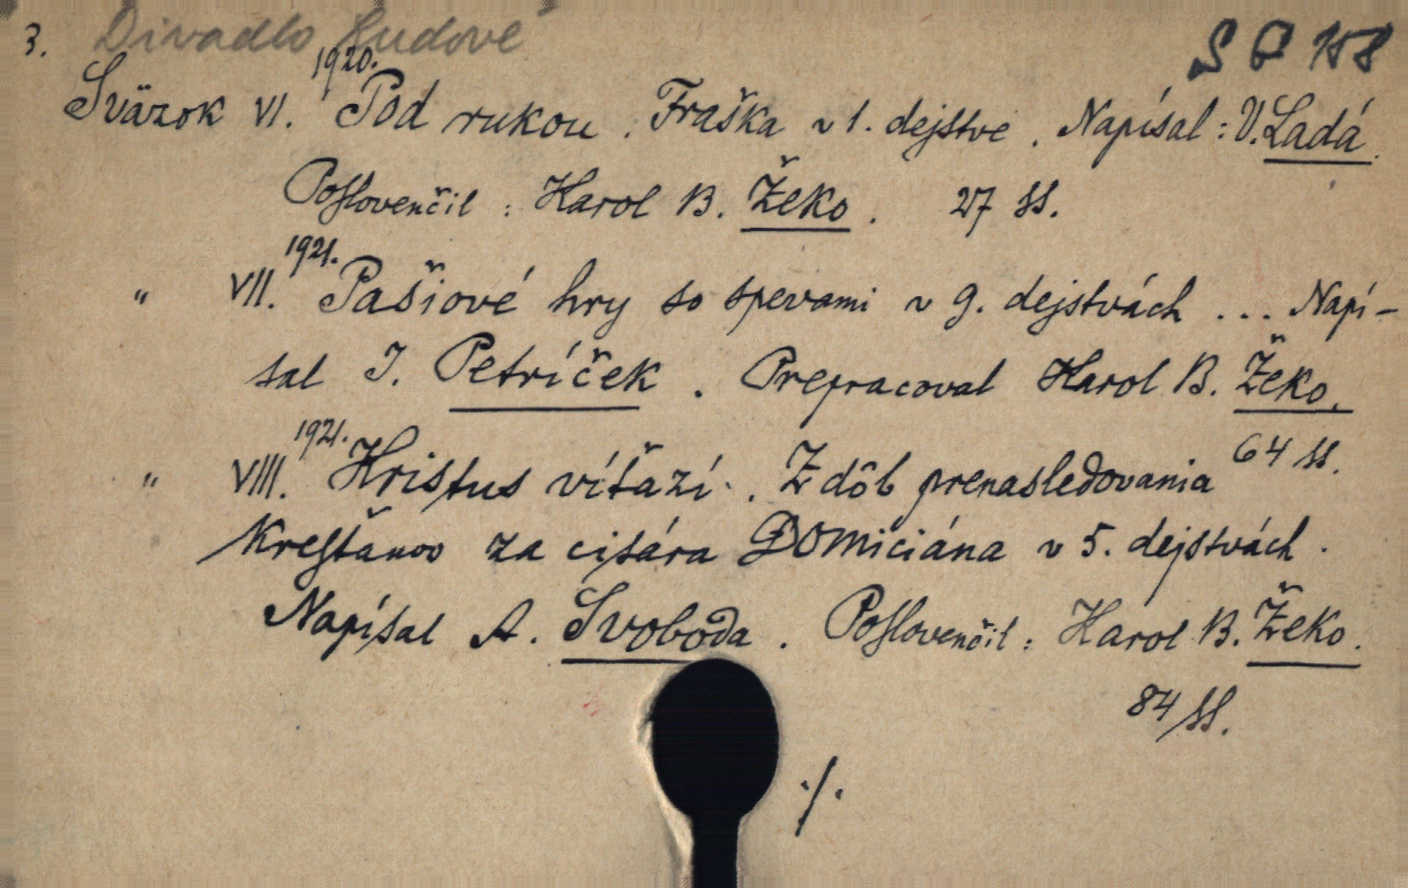 3. Divadlo ľudové S O 158
1920.
Sväzok VI. Pod rukou. Fraška v 1. dejstve. Napísal: V. Ladá.
Poslovenčil: Karol B. Žeko. 27 ss.
1921.
" VII. Pašiové hry so spevami v 9. dejstvách ... Napí-
sal I. Petríček. Prepracoval Karol B. Žeko.
64 ss.
1921.
" VIII. Kristus víťazí. Z dôb prenasledovania
Kresťanov za cisára Domiciána v 5. dejstvách.
Napísal A. Svoboda. Poslovenčil: Karol B. Žeko.
84 ss.
./.